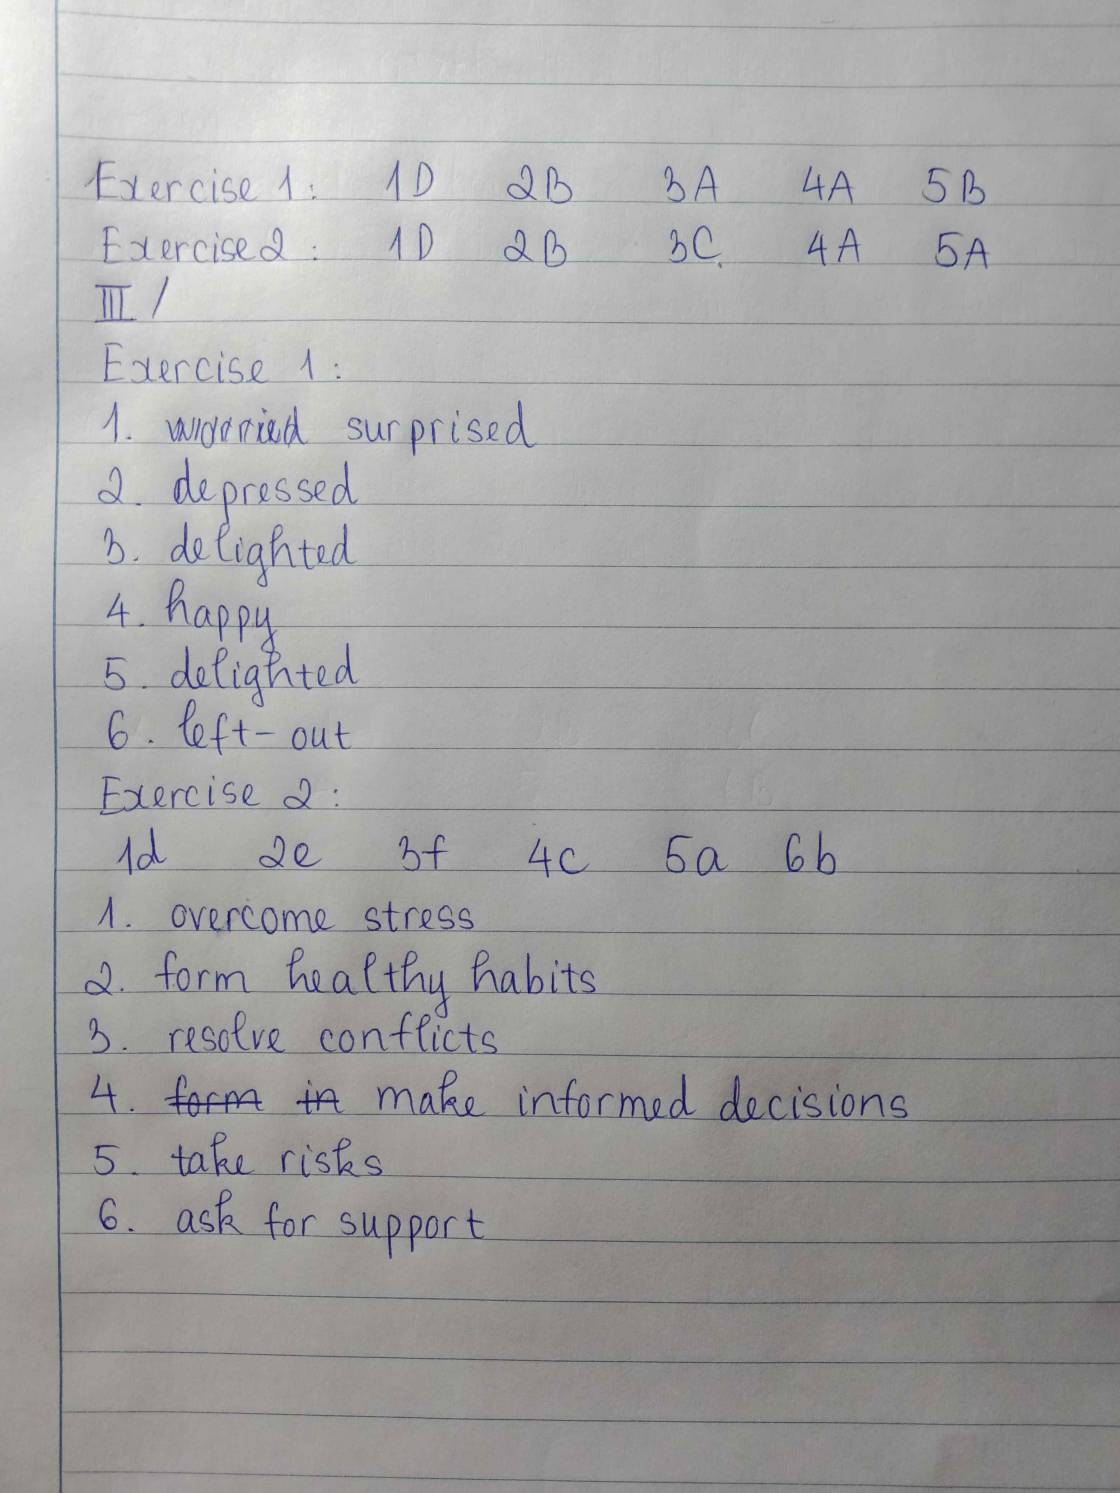 Exercise 1: 1D 2B 3A 4A 5B
Exercise 2: 1D 2B 3C. 4A 5A
III /
Exercise 1:
1. worried surprised
2. depressed
3. delighted
4. happy
5. delighted
6. left-out
Exercise 2:
1d 2e 3f 4c 5a 6b
1. overcome stress
2. form healthy habits
3. resolve conflicts
4. form in make informed decisions
5. take risks
6. ask for support